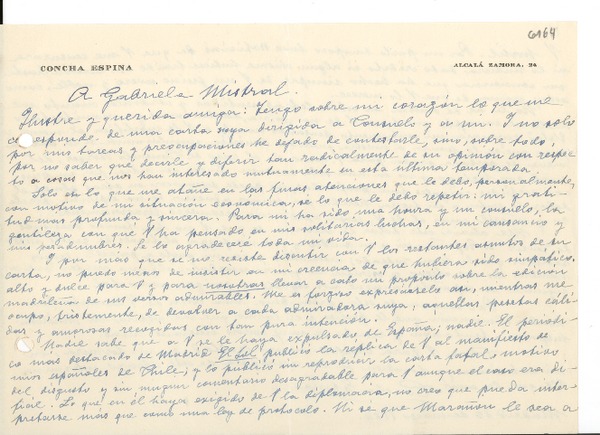 6164
CONCHA ESPINA
ALCALÁ ZAMORA, 24
A Gabriela Mistral.
Ilustre y querida amiga: Tengo sobre mi corazón lo que me
corresponde de una carta suya dirigida a Consuelo y a mí. Y no solo
por mis tareas y preocupaciones he dejado de contestarle, sino, sobre todo,
por no saber que decirle y deferir tan radicalmente de su opinión con respec-
to a cosas que nos han interesado mutuamente en esta última temporada.
Solo en lo que me atañe en las finas atenciones que le debo, personalmente,
con motivo de mi situación económica, se lo que le debo repetir: mi grati-
tud mas profunda y sincera. Para mi ha sido una honra y un consuelo, la
gentileza con que V ha pensado en mis solitarias luchas, en mi cansancio y
mis pesadumbres. Se lo agradeceré toda mi vida.
Y por mas que se me resiste discutir con V los restantes asuntos de su
carta, no puedo menos de insistir en mi creencia de que hubiera sido simpatico,
alto y dulce para V y para nosotras llevar a cabo mi propósito sobre la edición
madrileña de sus versos admirables. Me es forzoso expresárselo asi, mientras me
ocupo, tristemente, de devolver a cada admiradora suya, aquellas pesetas cáli-
das y amorosas recogidas con tan pura intención.
Nadie sabe que a V se le haya expulsado de España; nadie. El periodi-
co mas destacado de Madrid El Sol publicó la réplica de V al manifiesto de
unos españoles de Chile; y lo publicó sin reproducir la carta fatal, motivo
del disgusto y sin ningun comentario desagradable para V aunque el caso era di-
fícil. Lo que en él haya exigido de V la diplomacia, no creo que pueda inter-
pretarse más que como una ley de protocolo. Ni se que Marañón le sea a